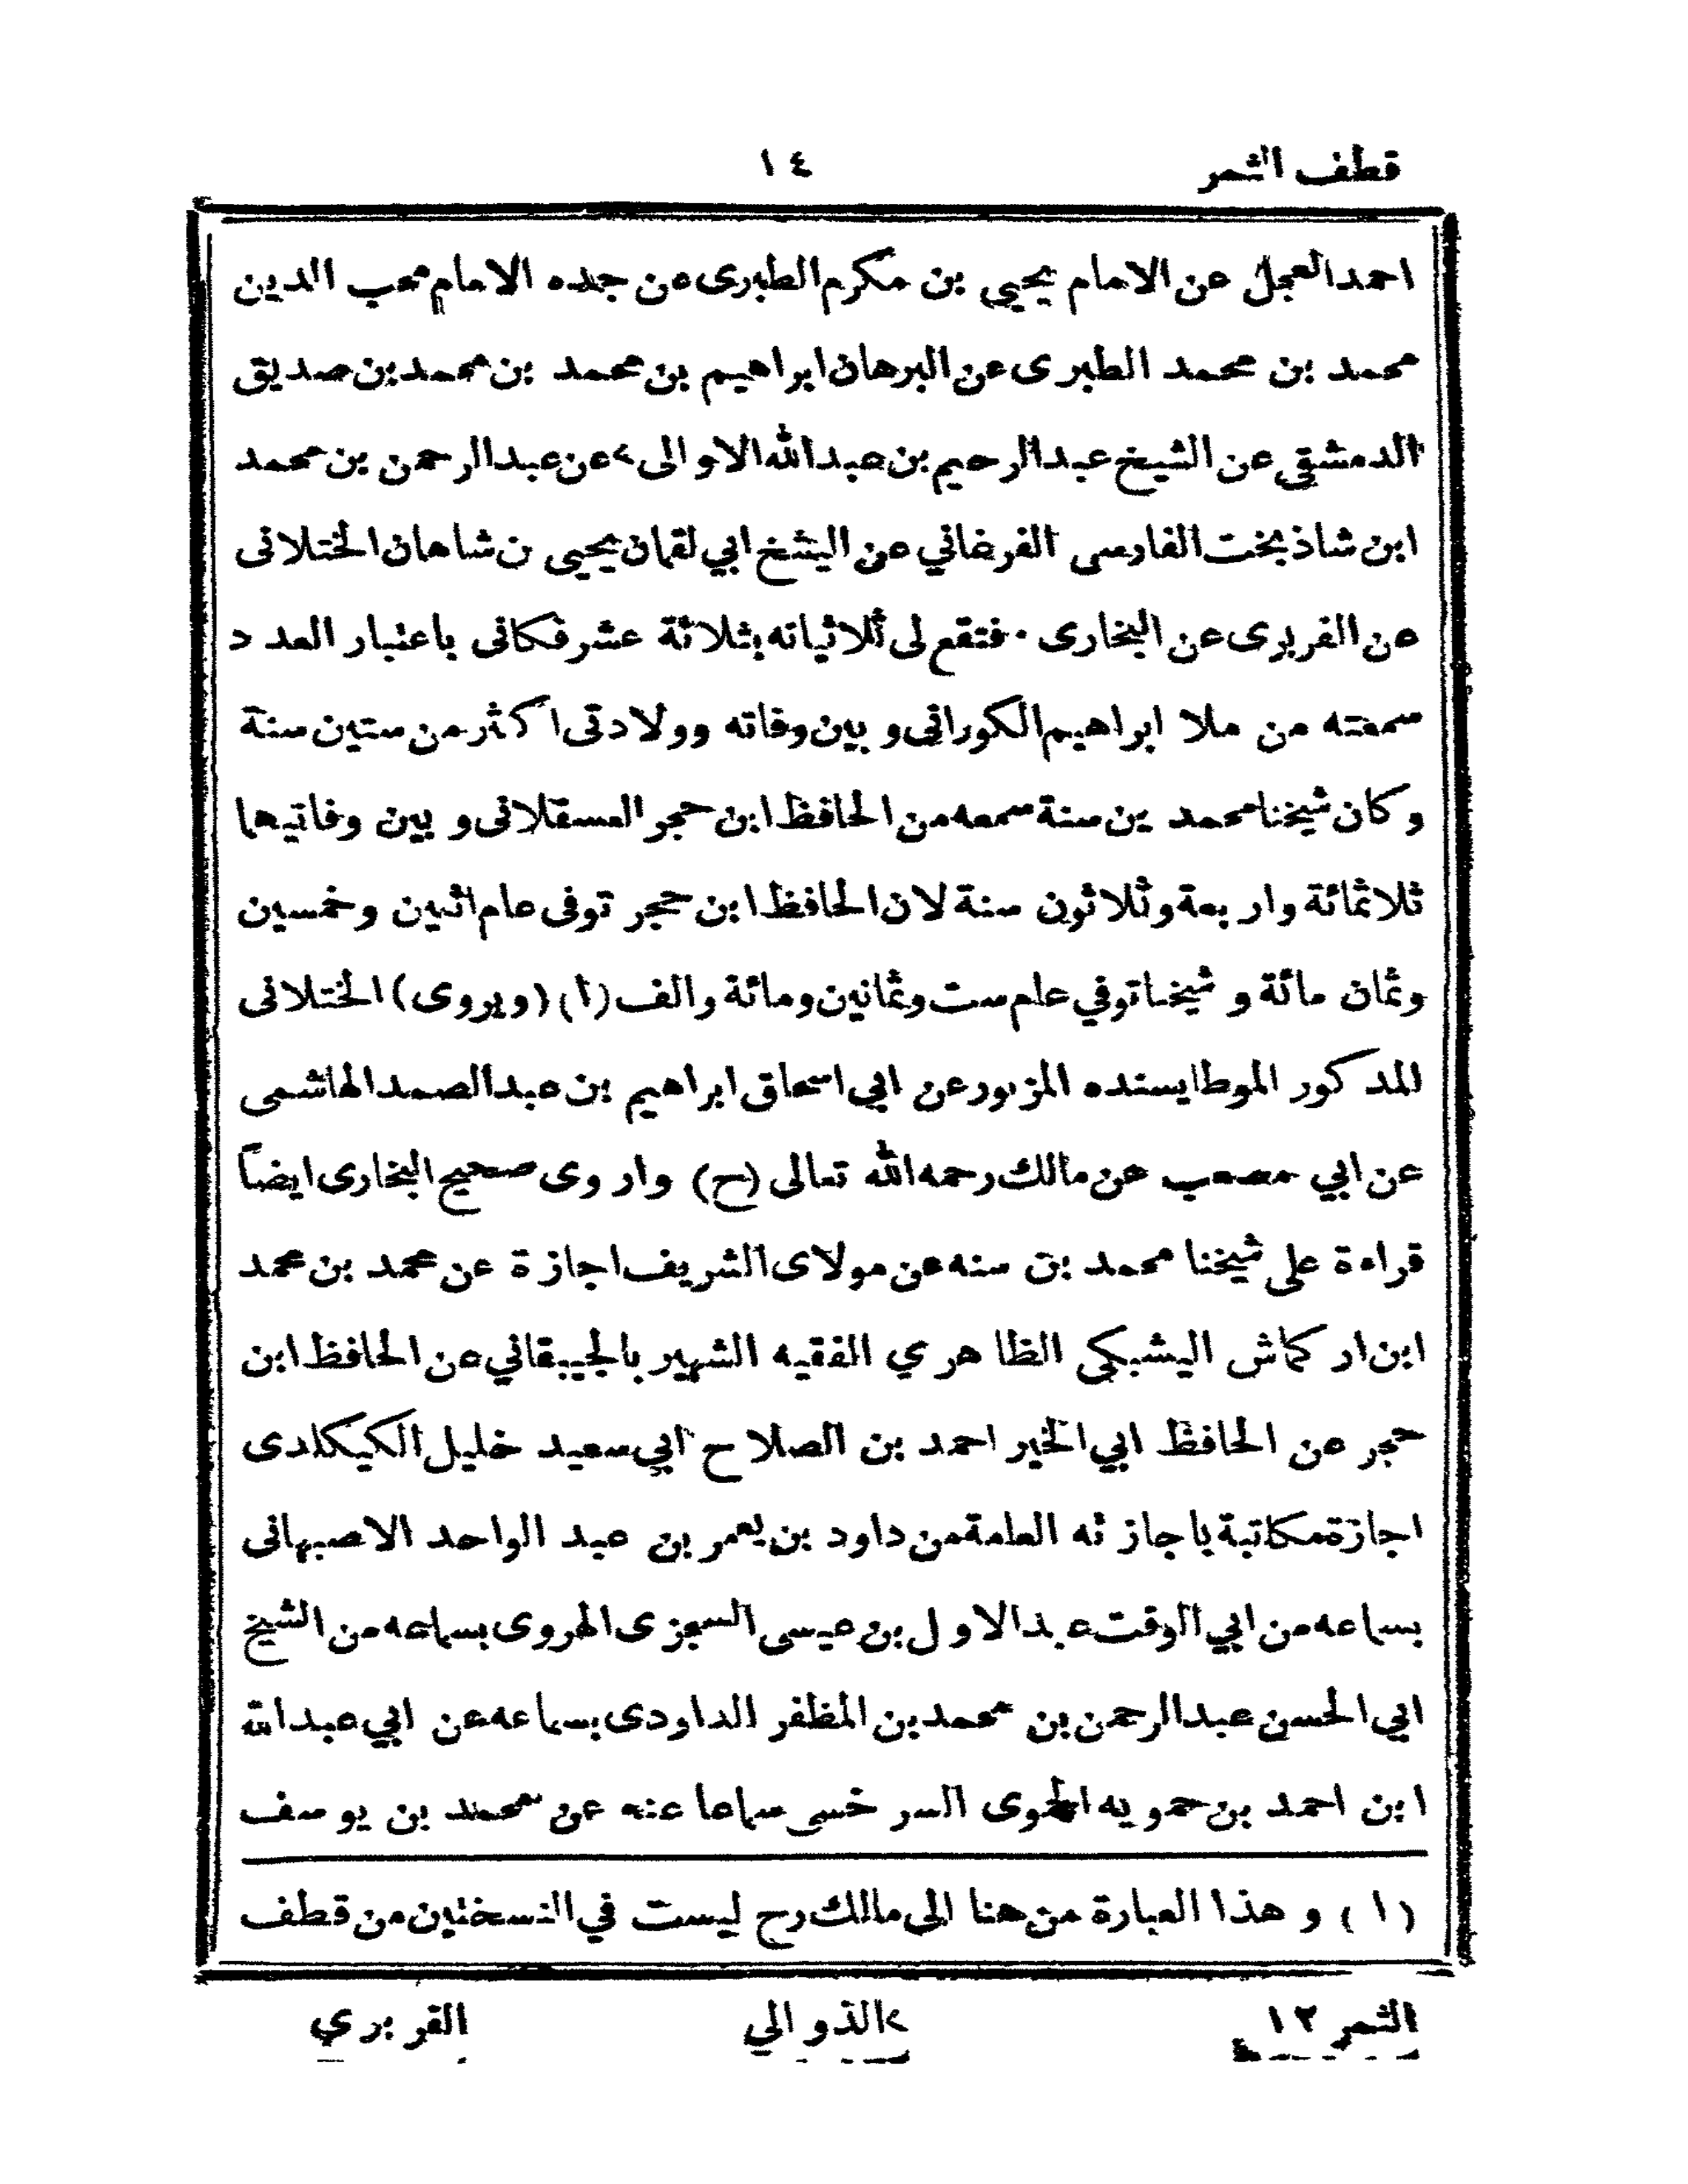 قطف الثمر
١٤
احمد العجل عن الامام يحيى بن مكرم الطبرى عن جده الامام محب الدين
محمد بن محمد الطبرى عن البرهان ابراهيم بن محمد بن محمد بن صديق
الدمشقي عن الشيخ عبد الرحيم بن عبد الله الاوالى> عن عبد الرحمن بن محمد
ابن شاذ بخت الفارسى الفرغاني عن اليشخ ابي لقمان يحيى ن شاهان الختلانى
عن الفربرى عن البخارى . فتقع لى ثلاثياته بثلاثة عشر فكانى باعتبار العدد
سمعته من ملا ابراهيم الكورانى و بين وفاته وولادتى اكثر من ستين سنة
وكان شيخنا محمد بن سنة سمعه من الحافظ ابن حجر العسقلانى و بين وفاتيهما
ثلاثمائة واربعة وثلاثون سنة لان الحافظ ابن حجر توفى عام اثنين وخمسين
وثمان مائة و شيخنا توفي عام ست وثمانين ومائة والف (١) (ويروى) الختلانى
المذكور الموطا بسنده المزبور عن ابي اسحاق ابراهيم بن عبد الصمد الهاشمى
عن ابي مصعب عن مالك رحمه الله تعالى (ح) واروى صحيح البخارى ايضاً
قراءة على شيخنا محمد بن سنه عن مولاى الشريف اجازة عن محمد بن محمد
ابن ار كماش اليشبكى الظاهري الفقيه الشهير بالجيبقاني عن الحافظ ابن
حجر عن الحافظ ابي الخير احمد بن الصلاح ابي سعيد خليل الكيكلدى
اجازة مكاتبة باجازته العامة من داود بن يعمر بن عبد الواحد الاصبهانى
بسماعه من ابي الوقت عبد الاول بن عيسى السجزى الهروى بسماعه من الشيخ
ابي الحسن عبد الرحمن بن محمد بن المظفر الداودى بسماعه عن ابي عبد الله
ابن احمد بن حمويه الحموى السرخسى سماعا عنه عن محمد بن يوسف
(١) و هذا العبارة من هنا الى مالك رح ليست في النسختين من قطف
الثمر ١٢
>الذوالي
الفربري